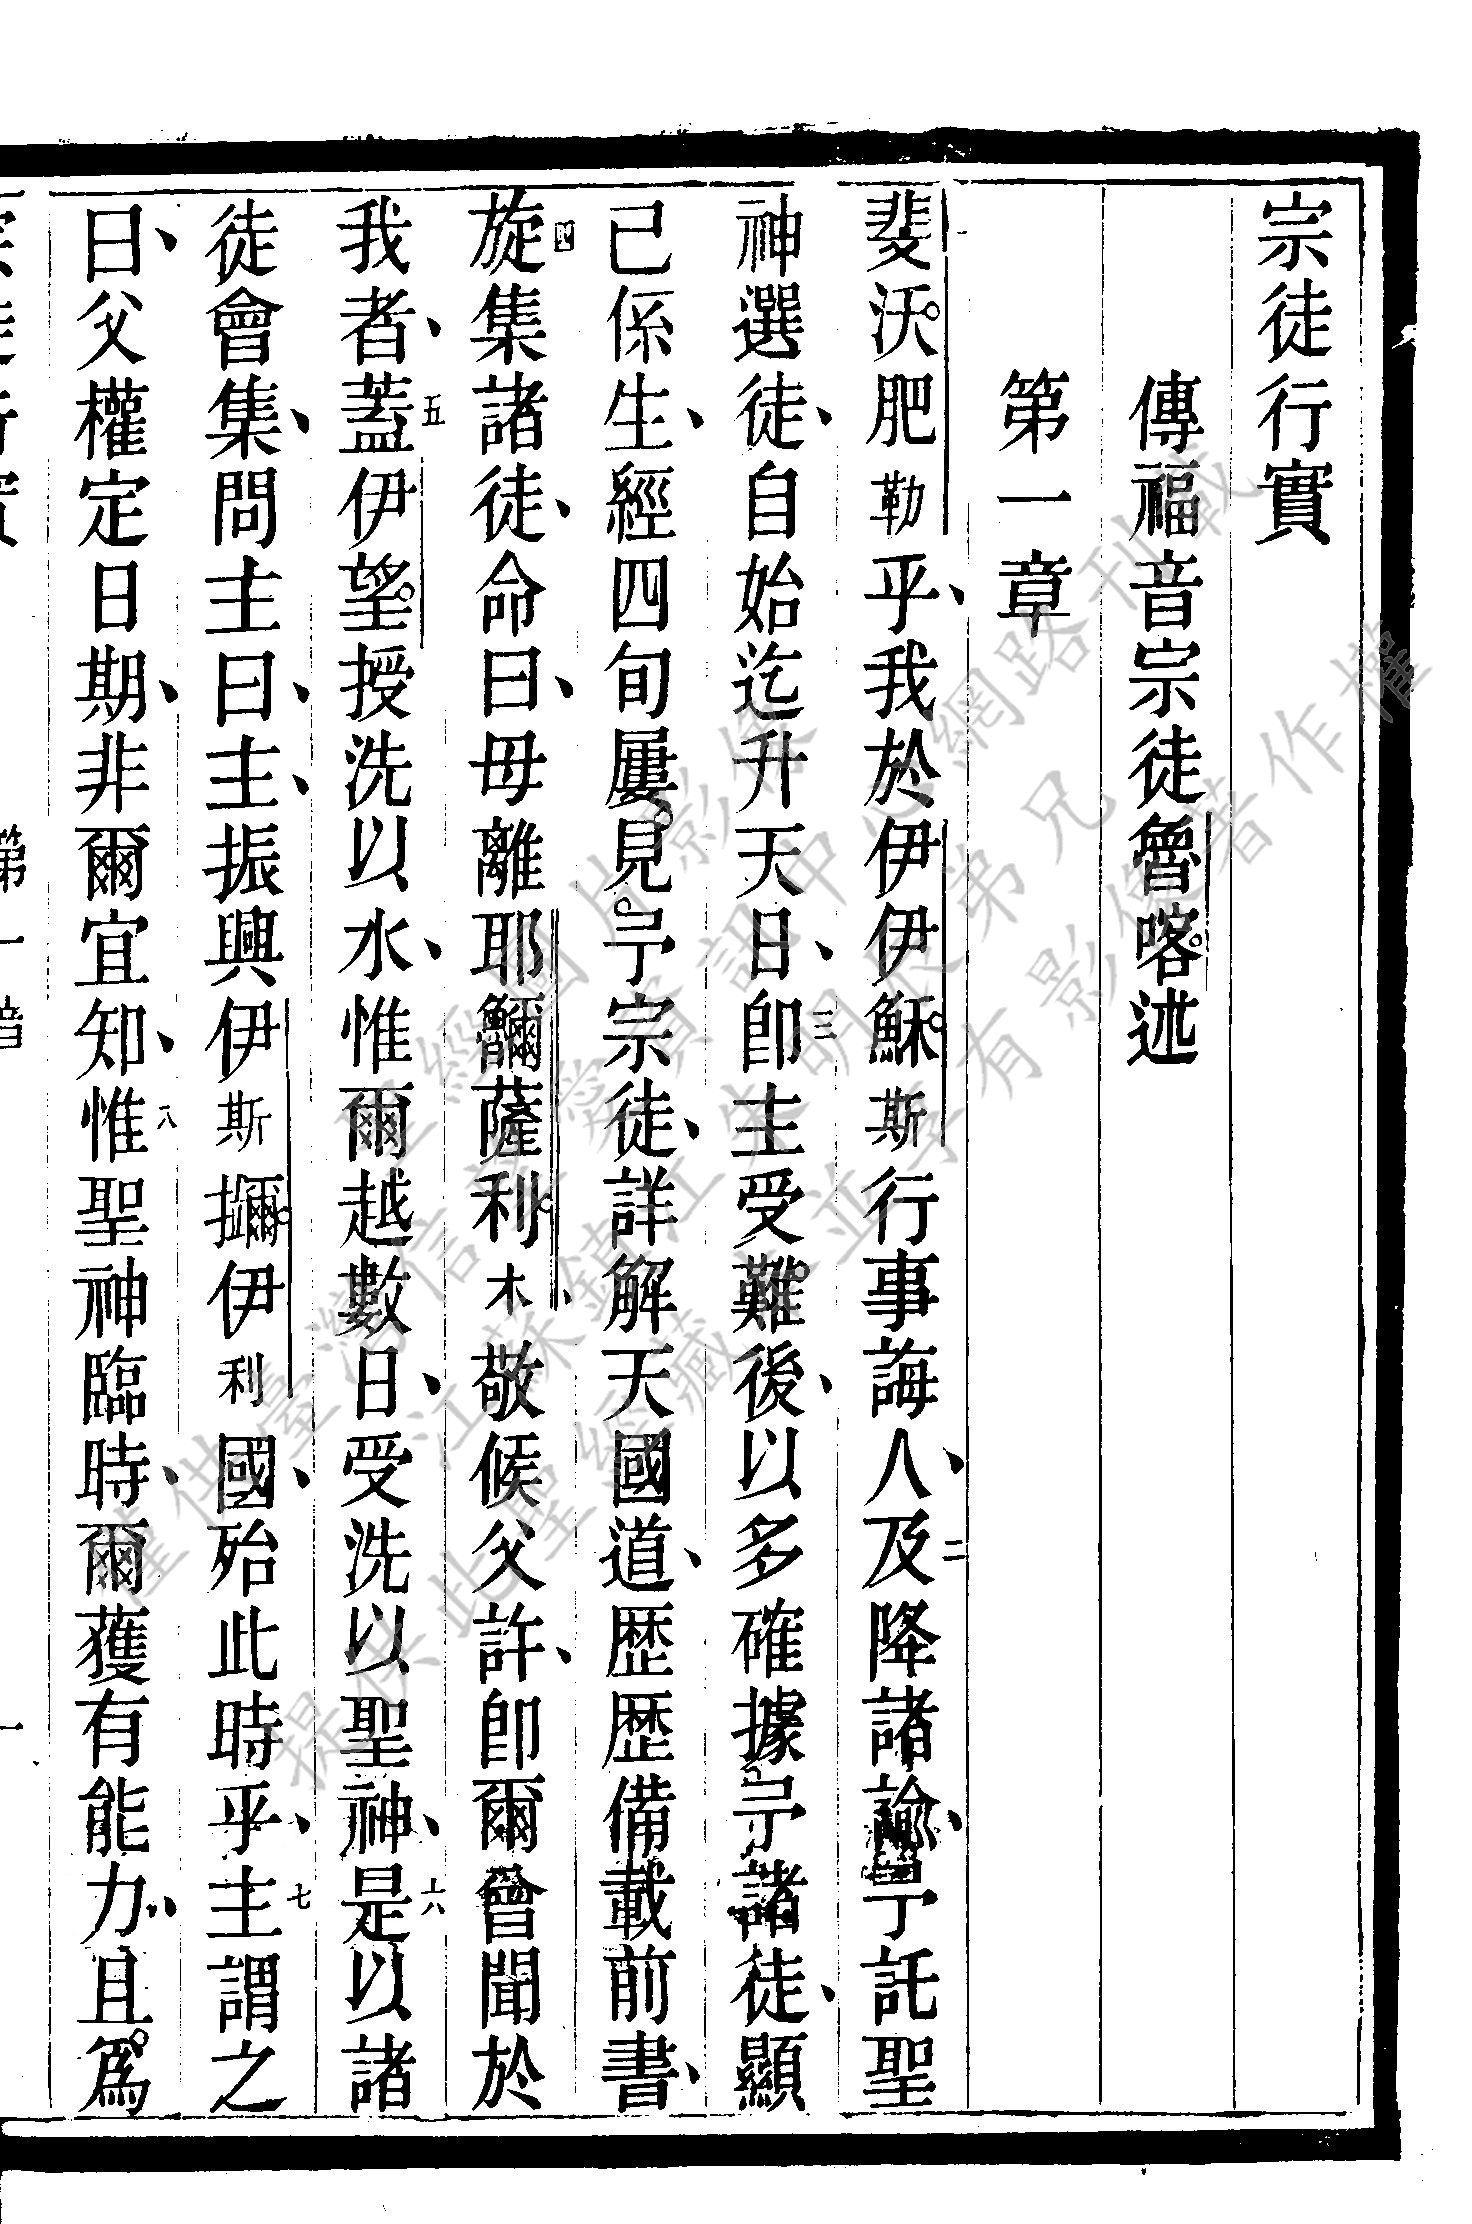 宗徒行實
傳福音宗徒魯喀述
第一章
一斐沃肥勒乎、我於伊伊穌斯行事誨人、二及降諸諭、於託聖
神選徒、自始迄升天日、三卽主受難後、以多確據於諸徒、顯
己係生、經四旬屢見於宗徒、詳解天國道、歴歴備載前書、
四旋集諸徒、命曰、毋離耶薩利木、敬候父許、卽爾曾聞於
我者、五蓋伊望授洗以水、惟爾越數日、受洗以聖神、六是以諸
徒會集、問主曰、主、振興伊斯伊利國、殆此時乎、七主謂之
曰、父權定日期、非爾宜知、八惟聖神臨時、爾獲有能力、且爲
宗徒行實
第一章
一